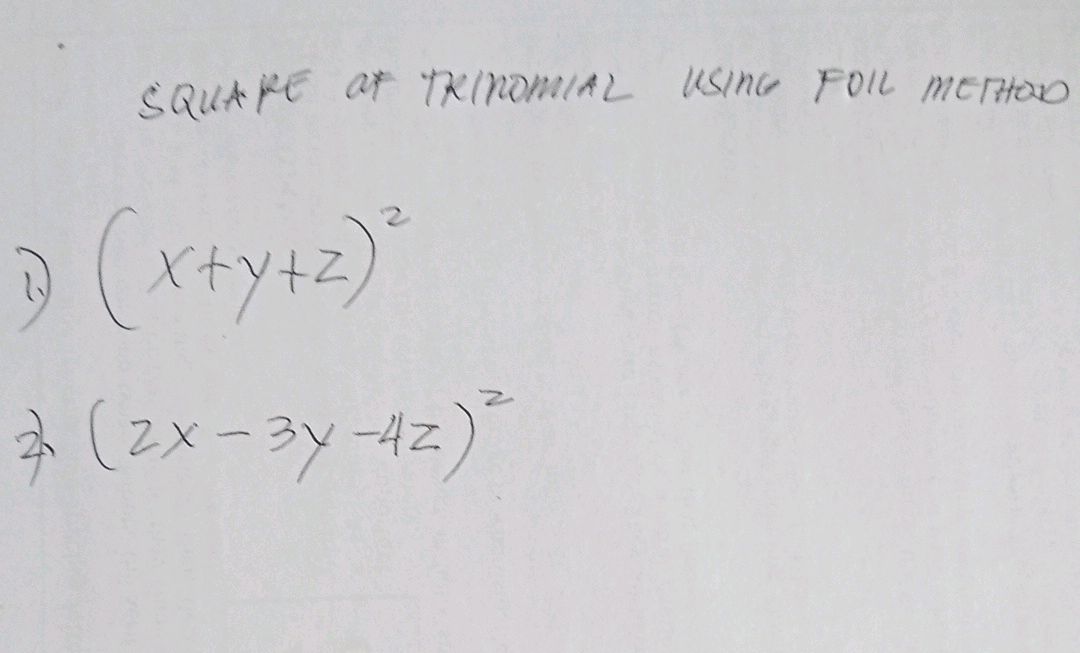 SQUARE OF TRINOMIAL USING FOIL METHOD
1.) (x+y+z)²
2.) (2x-3y-4z)²